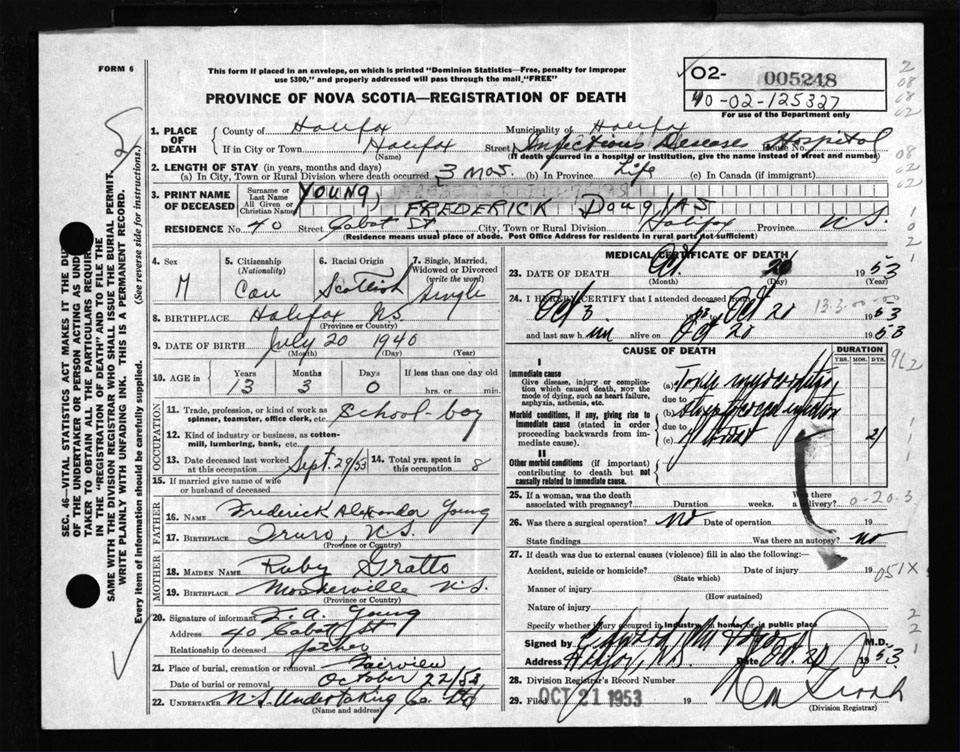 FORM 6
This form if placed in an envelope, on which is printed "Dominion Statistics—Free, penalty for improper
use $300," and properly addressed will pass through the mail "FREE"
PROVINCE OF NOVA SCOTIA—REGISTRATION OF DEATH
02- 005248
40-02-125327
For use of the Department only
1. PLACE OF DEATH
County of Halifax Municipality of Halifax
If in City or Town Halifax Street Infectious Diseases Hospital House No.
(Name) (If death occurred in a hospital or institution, give the name instead of street and number)
2. LENGTH OF STAY (in years, months and days)
(a) In City, Town or Rural Division where death occurred 3 mos. (b) In Province Life (c) In Canada (if immigrant)
3. PRINT NAME OF DECEASED
Surname or Last Name YOUNG,
All Given or Christian Names FREDERICK DougLAS
RESIDENCE No. 40 Street Cabot St, City, Town or Rural Division Halifax Province N.S.
(Residence means usual place of abode. Post Office Address for residents in rural parts not sufficient)
4. Sex
M
5. Citizenship
(Nationality)
Can
6. Racial Origin
Scottish
7. Single, Married,
Widowed or Divorced
(write the word)
Single
8. BIRTHPLACE Halifax NS
(Province or Country)
9. DATE OF BIRTH July 20 1940
(Month) (Day) (Year)
10. AGE in Years Months Days If less than one day old
13 3 0 hrs. or min.
OCCUPATION
11. Trade, profession, or kind of work as
spinner, teamster, office clerk, etc. school-boy
12. Kind of industry or business, as cotton-
mill, lumbering, bank, etc.
13. Date deceased last worked
at this occupation Sept. 29/53
14. Total yrs. spent in
this occupation 8
15. If married give name of wife
or husband of deceased
FATHER
16. NAME Frederick Alexander Young
17. BIRTHPLACE Truro, N.S.
(Province or Country)
MOTHER
18. MAIDEN NAME Ruby Gratto
19. BIRTHPLACE N.S.
(Province or Country)
20. Signature of informant F. A. Young
Address 40 Cabot St
Relationship to deceased father
21. Place of burial, cremation or removal Fairview
Date of burial or removal October 22/53
22. UNDERTAKER N.S. Undertaking Co. Ltd
(Name and address)
MEDICAL CERTIFICATE OF DEATH
23. DATE OF DEATH Oct. 20 1953
(Month) (Day) (Year)
24. I HEREBY CERTIFY that I attended deceased from
Oct 3 Oct 20 1953
and last saw him alive on Oct 20 1953
CAUSE OF DEATH
DURATION
YRS. MOS. DYS.
I
Immediate cause
Give disease, injury or complication which caused death, NOT the mode of dying, such as heart failure, asphyxia, asthenia, etc.
(a) Toxic myocarditis
due to
Morbid conditions, if any, giving rise to immediate cause (stated in order proceeding backwards from immediate cause)
(b)
due to
(c) of throat 21
II
Other morbid conditions (if important) contributing to death but not causally related to immediate cause.
25. If a woman, was the death
associated with pregnancy? Duration weeks. Was there a delivery?
26. Was there a surgical operation? No Date of operation 19
State findings Was there an autopsy? no
27. If death was due to external causes (violence) fill in also the following:—
Accident, suicide or homicide? Date of injury 19
(State which)
Manner of injury
(How sustained)
Nature of injury
Specify whether injury occurred in industry, in home, or in public place
Signed by M.D.
Address Halifax, N.S. Date Oct. 20 1953
28. Division Registrar's Record Number
29. Filed OCT 21 1953 19
(Division Registrar)
SEC. 46—VITAL STATISTICS ACT MAKES IT THE DUTY
OF THE UNDERTAKER OR PERSON ACTING AS UNDER-
TAKER TO OBTAIN ALL THE PARTICULARS REQUIRED
IN THE "REGISTRATION OF DEATH" AND TO FILE THE
SAME WITH THE DIVISION REGISTRAR WHO SHALL ISSUE THE BURIAL PERMIT.
WRITE PLAINLY WITH UNFADING INK. THIS IS A PERMANENT RECORD.
Every item of information should be carefully supplied. (See reverse side for instructions.)